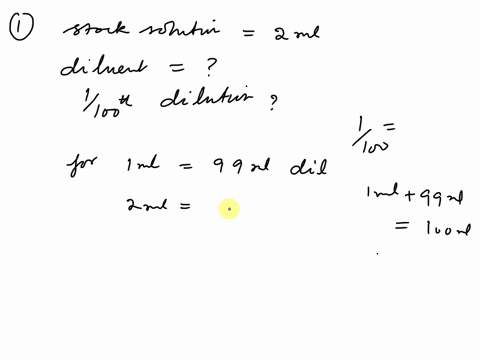 ① stock solution = 2 ml
diluent = ?
1/100th dilution ?
1/100 =
for 1 ml = 99 ml dil
2 ml =
1 ml + 99 ml
= 100 ml